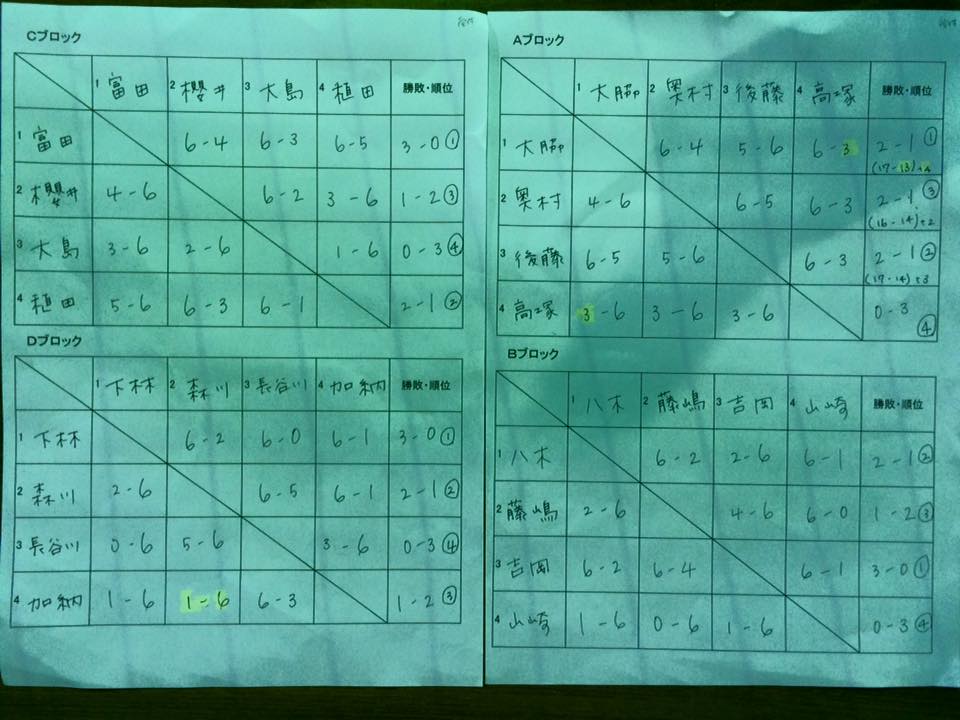 Cブロック
1 富田 2 櫻井 3 大島 4 植田 勝敗・順位
1 富田 6-4 6-3 6-5 3-0①
2 櫻井 4-6 6-2 3-6 1-2③
3 大島 3-6 2-6 1-6 0-3④
4 植田 5-6 6-3 6-1 2-1②
Dブロック
1 下林 2 森川 3 長谷川 4 加納 勝敗・順位
1 下林 6-2 6-0 6-1 3-0①
2 森川 2-6 6-5 6-1 2-1②
3 長谷川 0-6 5-6 3-6 0-3④
4 加納 1-6 1-6 6-3 1-2③
Aブロック
1 大脇 2 奥村 3 後藤 4 高塚 勝敗・順位
1 大脇 6-4 5-6 6-3 2-1①
(17-13)+4
2 奥村 4-6 6-5 6-3 2-1③
(16-14)+2
3 後藤 6-5 5-6 6-3 2-1②
(17-14)+3
4 高塚 3-6 3-6 3-6 0-3④
Bブロック
1 八木 2 藤嶋 3 吉岡 4 山崎 勝敗・順位
1 八木 6-2 2-6 6-1 2-1②
2 藤嶋 2-6 4-6 6-0 1-2③
3 吉岡 6-2 6-4 6-1 3-0①
4 山崎 1-6 0-6 1-6 0-3④